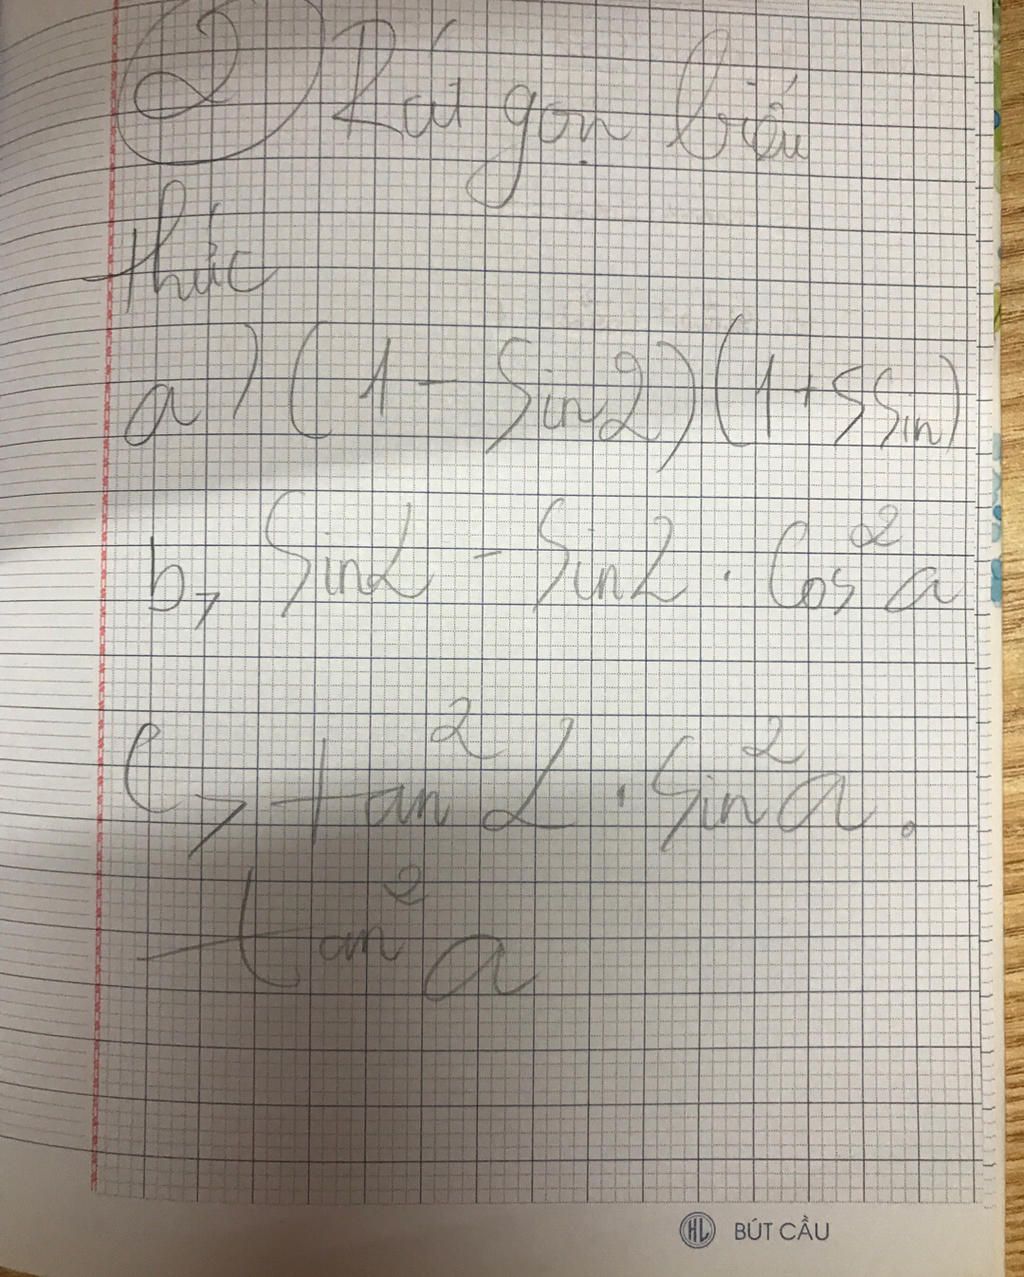 2 Rút gọn biểu
thức
a) (1 - Sin2)(1 + SSin)
b, Sin2 - Sin2 . Cos² a
c, tan² 2 . Sin² a .
tan² a
HL BÚT CẦU